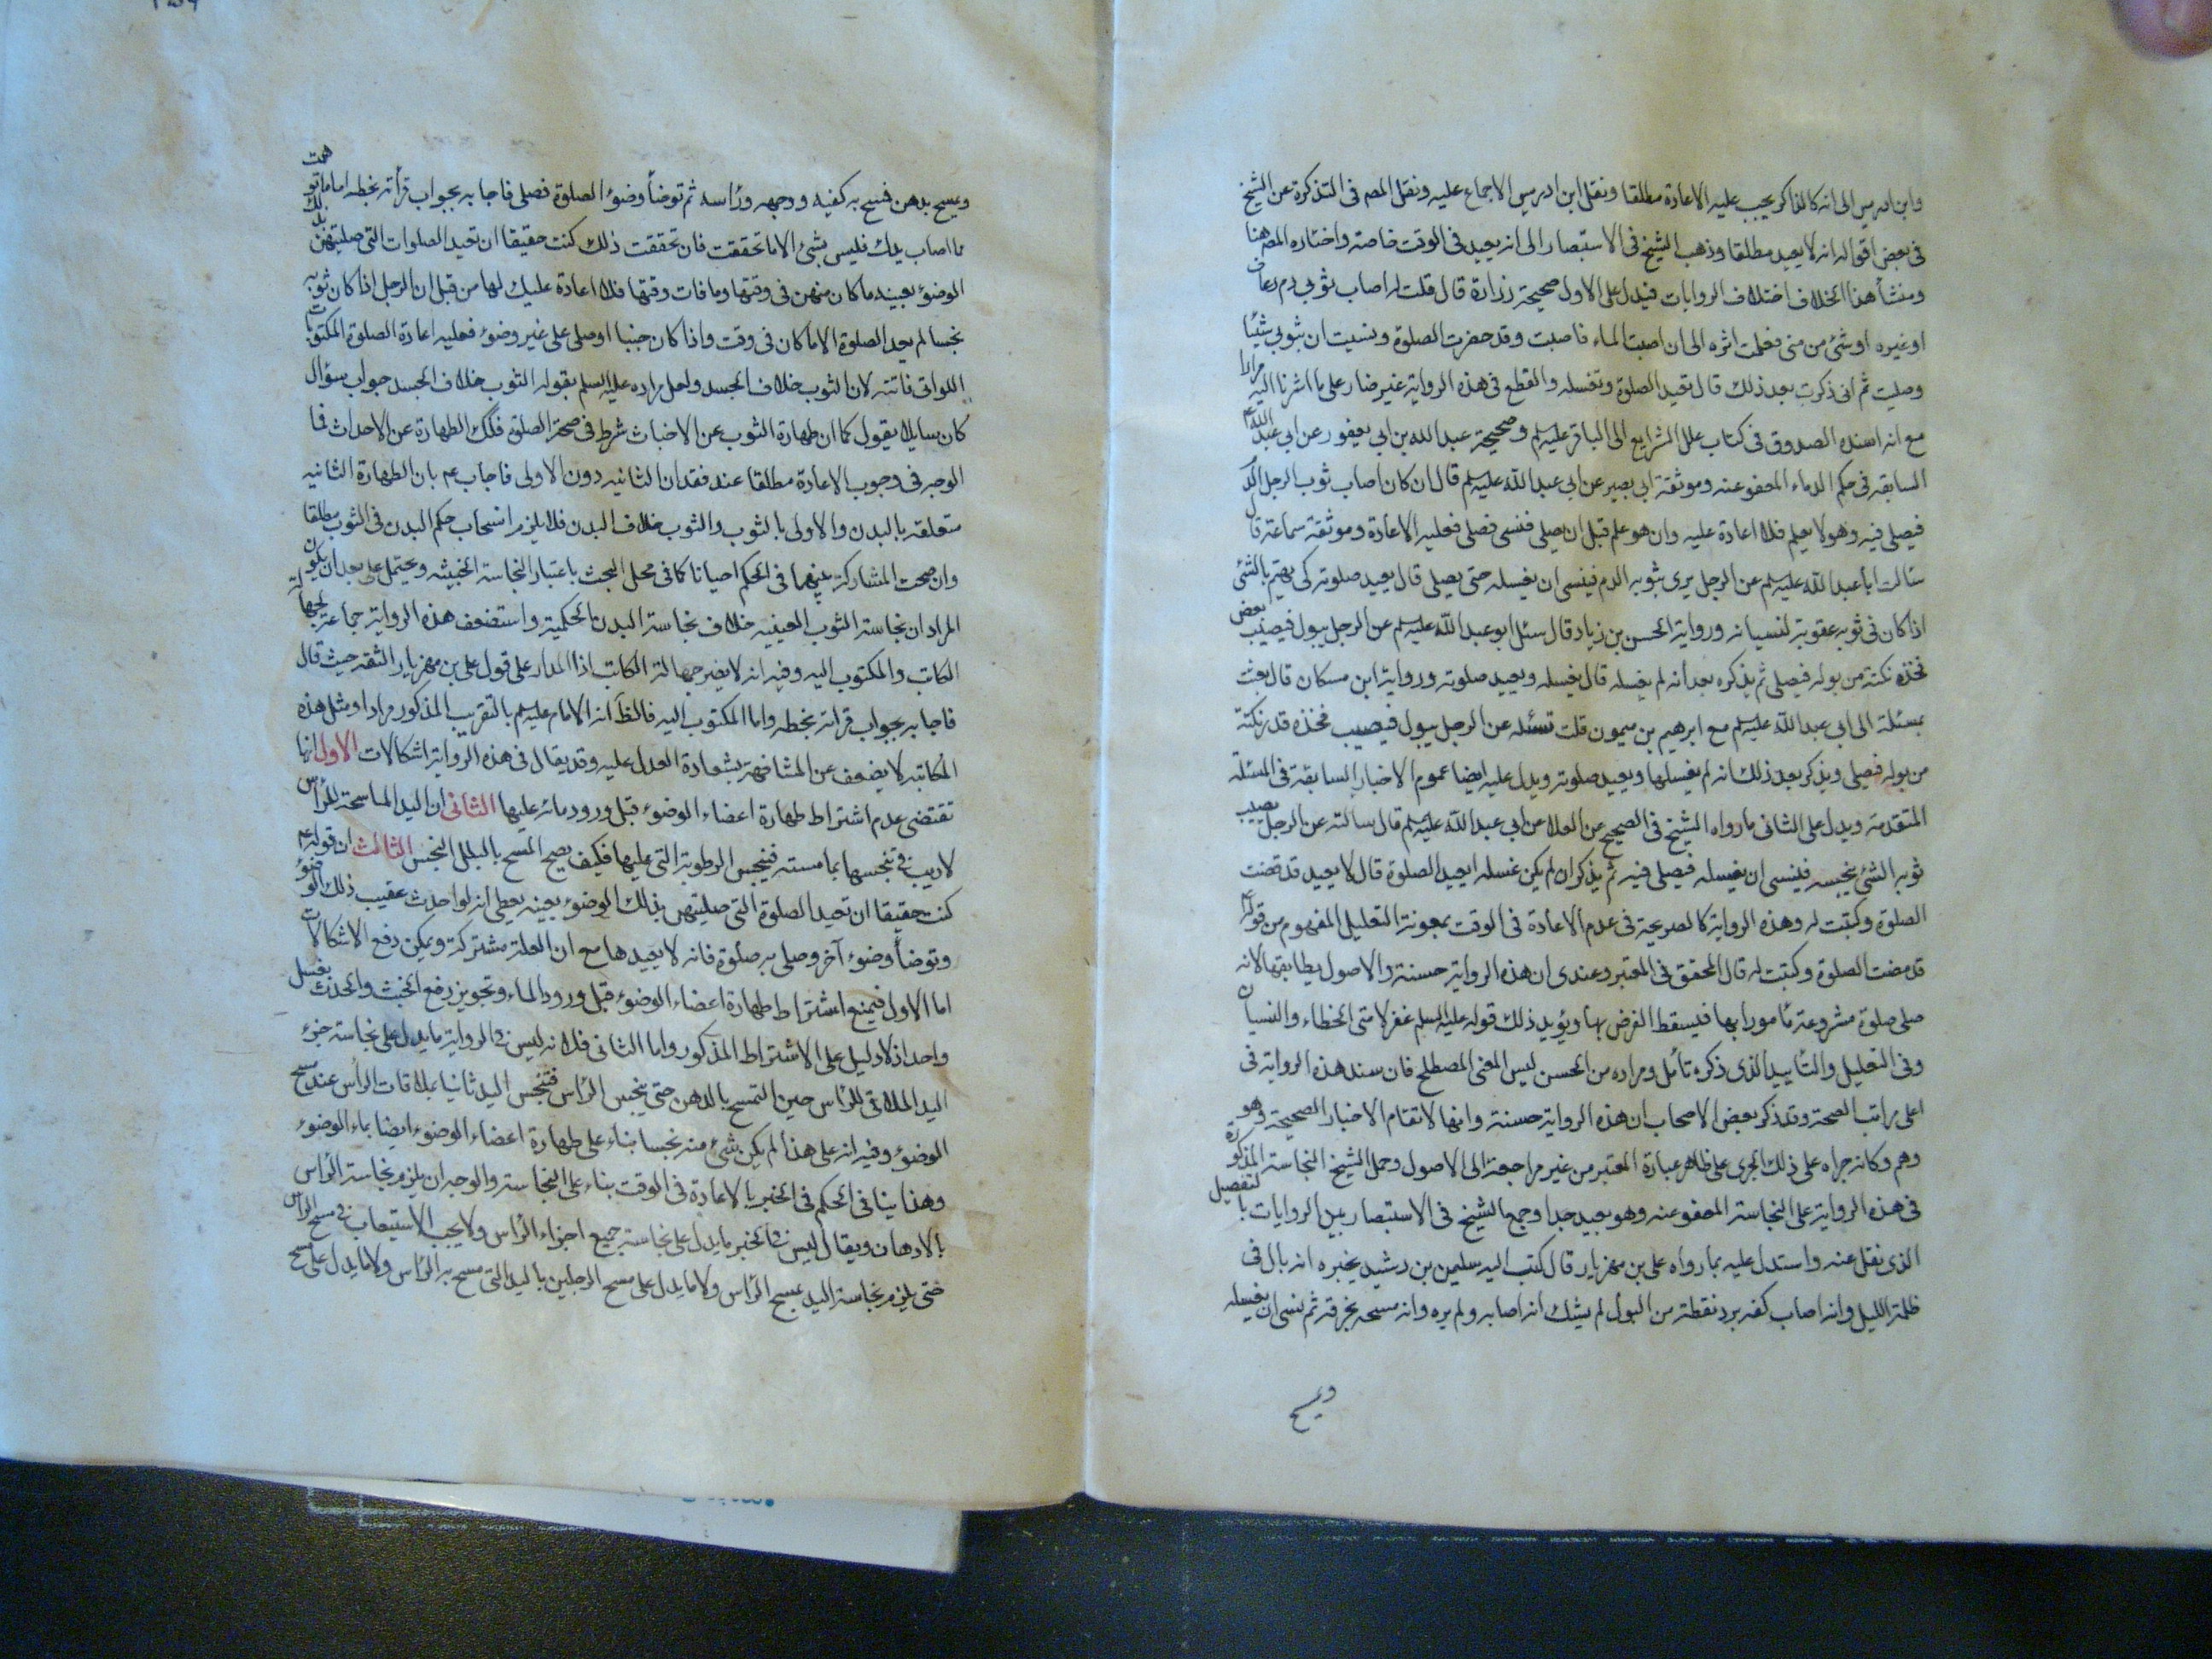 وابن ادريس الى انه كالذاكر يجب عليه الاعادة مطلقا ونقل ابن ادريس الاجماع عليه ونقل المصم فى التذكرة عن الشيخ
فى بعض اقواله انه لا يعيد مطلقا وذهب الشيخ فى الاستبصار الى انه يعيد فى الوقت خاصة واختاره المصم هنا
ومنشأ هذا الخلاف اختلاف الروايات فيدل على الاول صحيحة زرارة قال قلت له اصاب ثوبي دم رعاف
او غيره او شئ من منى فعلمت اثره الى ان اصبت الماء فاصبت وقد حضرت الصلوة ونسيت ان بثوبي شيئا
وصليت ثم انى ذكرت بعد ذلك قال تعيد الصلوة وتغسله والقطع فى هذه الرواية غير ضار على ما اشرنا اليه مرارا
مع انه اسنده الصدوق فى كتاب علل الشرايع الى الباقر عليه سلم وصحيحة عبد الله بن ابي يعفور عن ابي عبد الله عم
السابقه فى حكم الدماء المعفو عنه وموثقة ابي بصير عن ابي عبد الله عليه سلم قال ان كان اصاب ثوب الرجل الدم
فيصلى فيه وهو لا يعلم فلا اعادة عليه وان هو علم قبل ان يصلى فنسى فصلى فعليه الاعادة وموثقة سماعة قال
سئالت ابا عبد الله عليه سلم عن الرجل يرى بثوبه الدم فينسى ان يغسله حتى يصلى قال يعيد صلوته كى يهتم بالشئ
اذا كان فى ثوبه عقوبة لنسيانه ورواية الحسن بن زياد قال سئل ابو عبد الله عليه سلم عن الرجل يبول فيصيب بعض
فخذه نكتة من بوله فيصلى ثم يذكره بعد انه لم يغسله قال يغسله ويعيد صلوته ورواية ابن مسكان قال بعثت
بمسئلة الى ابي عبد الله عليه سلم مع ابرهيم بن ميمون قلت تسئله عن الرجل يبول فيصيب فخذه قدر نكتة
من بوله فيصلى ويذكر بعد ذلك انه لم يغسلها ويعيد صلوته ويدل عليه ايضا عموم الاخبار السابقة فى المسئلة
المتقدمة ويدل على الثانى ما رواه الشيخ فى الصحيح عن العلا عن ابي عبد الله عليه سلم قال سالته عن الرجل يصيب
ثوبه الشئ ينجسه فينسى ان يغسله فيصلى فيه ثم يذكر ان لم يكن غسله ايعيد الصلوة قال لا يعيد قد مضت
الصلوة وكتبت له وهذه الرواية كالصريحة فى عدم الاعادة فى الوقت بمعونة التعليل المفهوم من قوله عم
قد مضت الصلوة وكتبت له قال المحقق فى المعتبر وعندى ان هذه الرواية حسنة والاصول يطابقها لانه
صلى صلوة مشروعة مأمورا بها فيسقط الفرض بها ويؤيد ذلك قوله عليه السلم غفر لامتى الخطاء والنسيان
وفى التعليل والتأييد الذى ذكره تأمل ومراده من الحسن ليس المعنى المصطلح فان سند هذه الرواية فى
اعلى مراتب الصحة وقد ذكر بعض الاصحاب ان هذه الرواية حسنة وانها لا تقام الاخبار الصحيحة وهو
وهم وكانه جراه على ذلك الجرى على ظاهر عبارة المعتبر من غير مراجعة الى الاصول وحمل الشيخ النجاسة المذكورة
فى هذه الرواية على النجاسة المعفو عنه وهو بعيد جدا وجمع الشيخ فى الاستبصار بين الروايات بالتفصيل
الذى نقل عنه واستدل عليه بما رواه على بن مهزيار قال كتب اليه سليمن بن رشيد يخبره انه بال فى
ظلمة الليل وانه اصاب كفه برد نقطة من البول لم يشك انه اصابه ولم يره وانه مسحه بخرقة ثم نسى ان يغسله
ويمسح
ويمسح بدهن فمسح به كفيه ووجهه ورأسه ثم توضأ وضوء الصلوة فصلى فاجابه بجواب قرأته بخطه اما ما توهمت
مما اصاب يدك فليس بشئ الا ما تحققت فان تحققت ذلك كنت حقيقا ان تعيد الصلوات التى صليتهن بذلك
الوضوء بعينه ما كان منهن فى وقتها وما فات وقتها فلا اعادة عليك لها من قبل ان الرجل اذا كان ثوبه
نجسا لم يعد الصلوة الا ما كان فى وقت واذا كان جنبا او صلى على غير وضوء فعليه اعادة الصلوة المكتوبات
اللواتى فاتته لان الثوب خلاف الجسد ولعل مراده عليه السلم بقوله الثوب خلاف الجسد جواب سؤال
كان سايلا يقول كما ان طهارة الثوب عن الاخباث شرط فى صحة الصلوة فكك الطهارة عن الاحداث فما
الوجه فى وجوب الاعادة مطلقا عند فقدان الثانيه دون الاولى فاجاب عم بان الطهارة الثانيه
متعلقه بالبدن والاولى بالثوب والثوب خلاف البدن فلا يلزم انسحاب حكم البدن فى الثوب مطلقا
وان صحت المشاركة بينهما فى الحكم احيانا كما فى محل البحث باعتبار النجاسة الخبيثه ويحتمل على بعد ان يكون
المراد ان نجاسة الثوب العينيه خلاف نجاسة البدن الحكمية واستضعف هذه الرواية جماعة لجهالة
الكاتب والمكتوب اليه وفيه انه لا يضر جهالة الكاتب اذ المدار على قول على بن مهزيار الثقه حيث قال
فاجابه بجواب قراته بخطه واما المكتوب اليه فالظ انه الامام عليه سلم بالتقريب المذكور مرارا ومثل هذه
المكاتبه لا يضعف عن المشافهة بشهادة العدل عليه وقد يقال فى هذه الرواية اشكالات الاول انها
تقتضى عدم اشتراط طهارة اعضاء الوضوء قبل ورود مائه عليها الثانى ان اليد الماسحة للرأس
لا ريب فى تنجسها بما مسته فينجس الرطوبة التى عليها فكيف يصح المسح بالبلل النجس الثالث ان قوله عم
كنت حقيقا ان تعيد الصلوة التى صليتهن بذلك الوضوء بعينه يعطى انه لو احدث عقيب ذلك الوضوء
وتوضأ وضوء آخر وصلى به صلوة فانه لا يعيدها مع ان العلة مشتركة ويمكن دفع الاشكالات
اما الاول فبمنع اشتراط طهارة اعضاء الوضوء قبل ورود الماء وتجويز رفع الخبث والحدث بغسل
واحد اذ لا دليل على الاشتراط المذكور واما الثانى فلانه ليس فى الرواية ما يدل على نجاسة جزء
اليد الملاقى للرأس حين التمسح بالدهن حتى ينجس الرأس فتنجس اليد ثانيا بملاقات الرأس عند مسح
الوضوء وفيه انه على هذا لم يكن شئ منه نجسا بناء على طهارة اعضاء الوضوء ايضا بماء الوضوء
وهذا ينافى الحكم فى الخبر بالاعادة فى الوقت بناء على النجاسة والوجه ان يلزم نجاسة الرأس
بالادهان ويقال ليس فى الخبر ما يدل على نجاسة جميع اجزاء الرأس ولا يجب الاستيعاب فى مسح الرأس
حتى يلزم نجاسة اليد بمسح الرأس ولا ما يدل على مسح الرجلين باليد التى مسح به الرأس ولا ما يدل على مسح